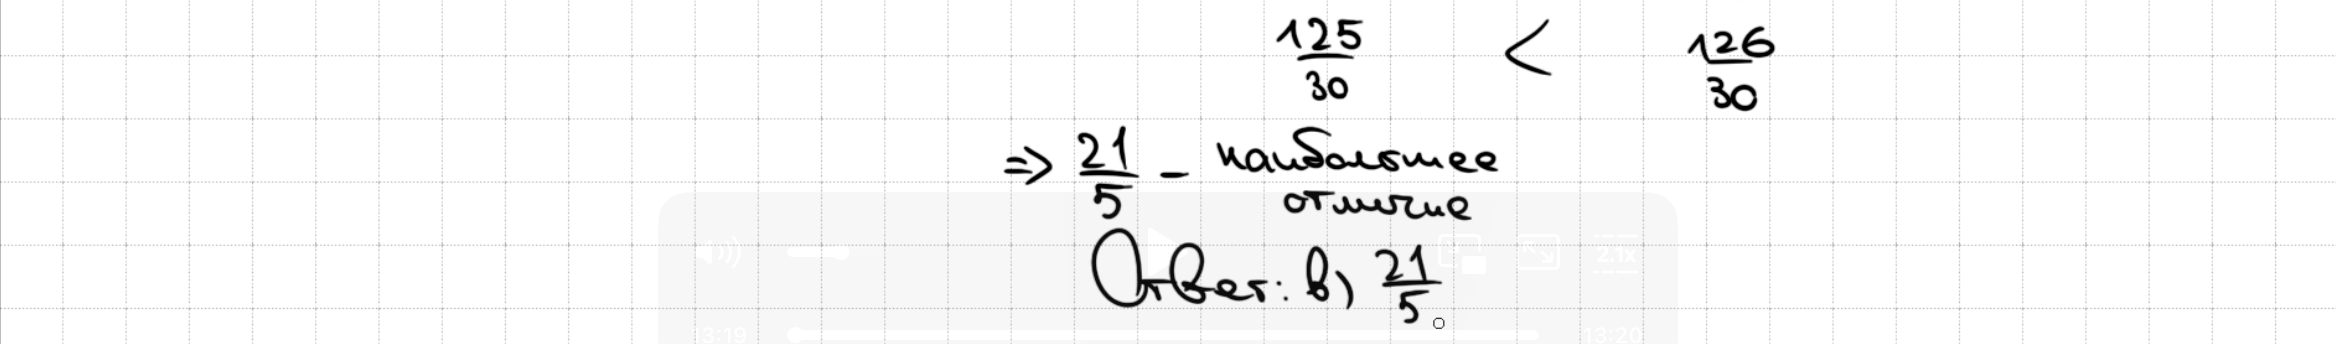 125/30 < 126/30
=> 21/5 - наибольшее
отличие
Ответ: в) 21/5
2.1x
13:19 13:20